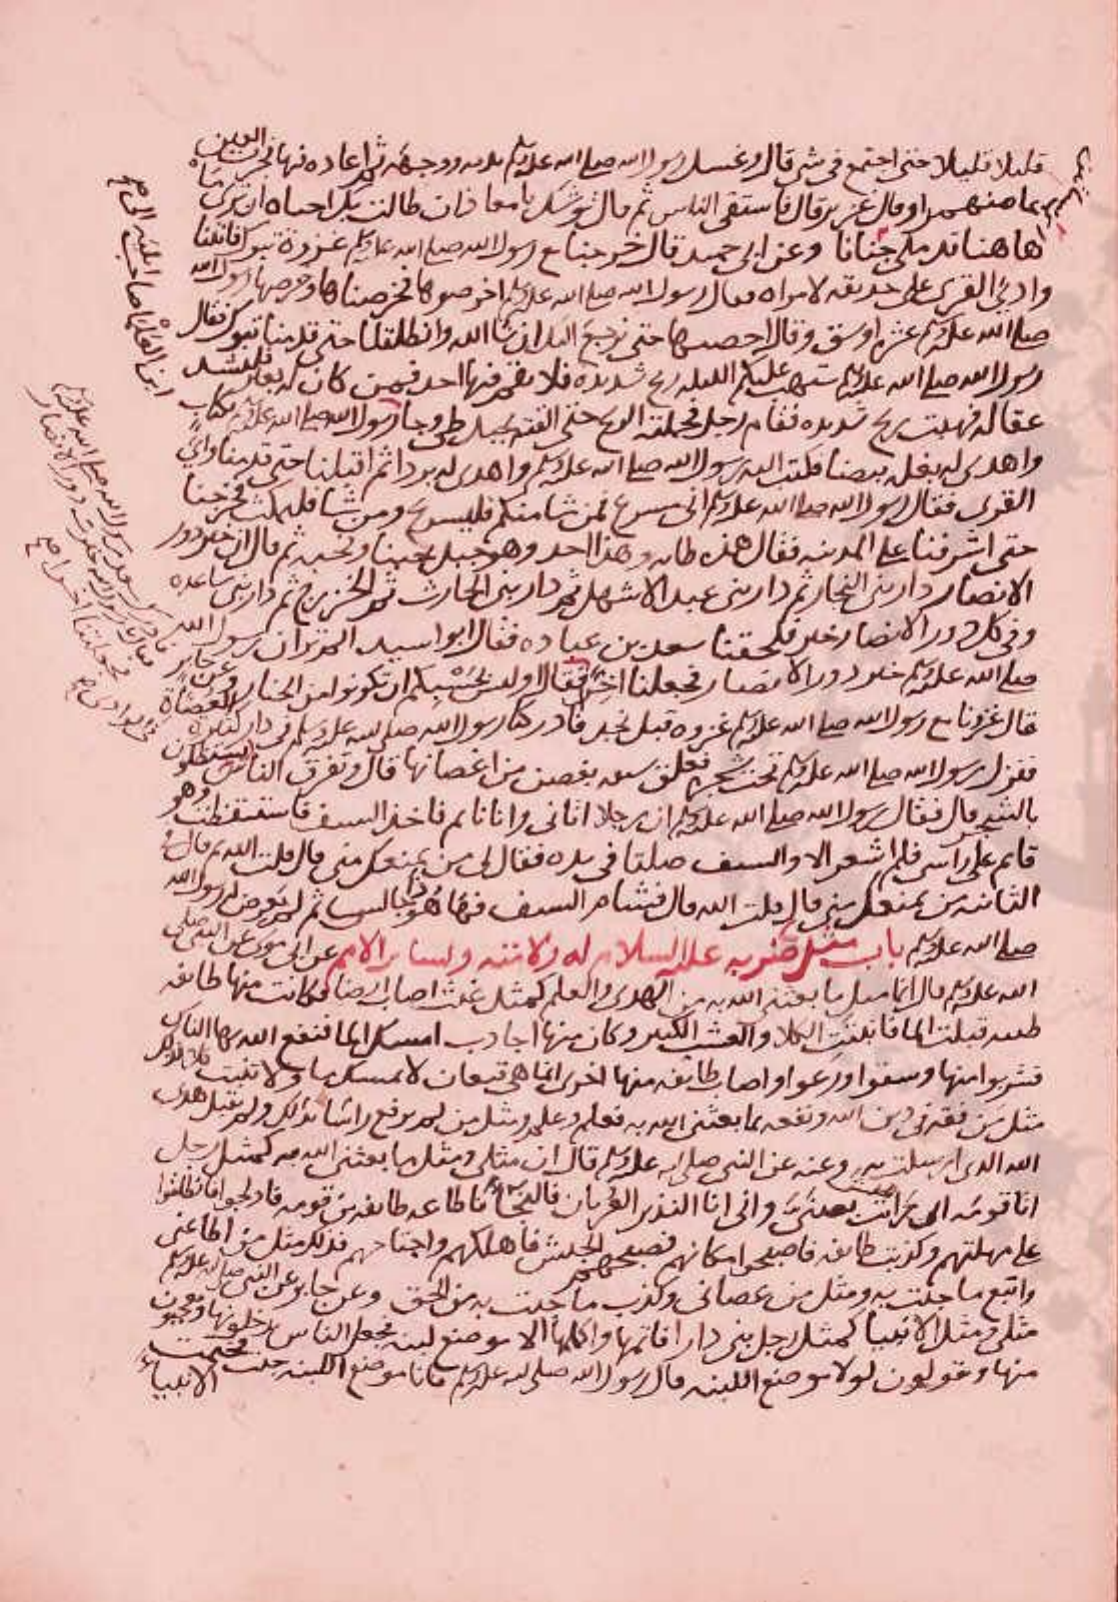 قليلا قليلا حتى اجتمع في شي قال وغسل رسول الله صلى الله عليه وسلم يديه ووجهه ثم اعاده فيها فجرت العين
بماء منهمر او قال غزير قال فاستقى الناس ثم قال يوشك يا معاذ ان طالت بك حياه ان ترى ما
هاهنا قد ملئ جنانا وعن ابي حميد قال خرجنا مع رسول الله صلى الله عليه وسلم غزوة تبوك فاتينا
وادي القرى على حديقه لامراه فقال رسول الله صلى الله عليه وسلم اخرصوها فخرصناها وخرصها رسول الله
صلى الله عليه وسلم عشره اوسق وقال احصيها حتى نرجع اليك ان شا الله وانطلقنا حتى قدمنا تبوك فقال
رسول الله صلى الله عليه وسلم ستهب عليكم الليله ريح شديده فلا يقم فيها احد فمن كان له بعير فليشد
عقاله فهبت ريح شديده فقام رجل فحملته الريح حتى القته بجبل طي وجا رسول الله صلى الله عليه وسلم بكتاب
واهدى له بغله بيضا فكتب اليه رسول الله صلى الله عليه وسلم واهدى له بردا ثم اقبلنا حتى قدمنا وادي
القرى فقال رسول الله صلى الله عليه وسلم اني مسرع فمن شا منكم فليسرع ومن شا فليمكث فخرجنا
حتى اشرفنا على المدينه فقال هذه طابه وهذا احد وهو جبل يحبنا ونحبه ثم قال ان خير دور
الانصار دار بني النجار ثم دار بني عبد الاشهل ثم دار بني الحارث بن الخزرج ثم دار بني ساعده
وفي كل دور الانصار خير فلحقنا سعد بن عباده فقال ابو اسيد الم تر ان رسول الله
صلى الله عليه وسلم خير دور الانصار فجعلنا اخرا فقال اوليس بحسبكم ان تكونوا من الخيار وعن جابر
قال غزونا مع رسول الله صلى الله عليه وسلم غزوه قبل نجد فادركنا رسول الله صلى الله عليه وسلم في واد كثير العضاه
فنزل رسول الله صلى الله عليه وسلم تحت شجره فعلق سيفه بغصن من اغصانها قال وتفرق الناس يستظلون
بالشجر قال فقال رسول الله صلى الله عليه وسلم ان رجلا اتاني وانا نايم فاخذ السيف فاستيقظت وهو
قايم على راسي فلم اشعر الا والسيف صلتا في يده فقال لي من يمنعك مني قال قلت الله ثم قال في
الثانيه من يمنعك مني قال قلت الله قال فشام السيف فها هو ذا جالس ثم لم يعرض له رسول الله
صلى الله عليه وسلم باب مثل ضربه عليه السلام له ولامته ولساير الامم عن ابي موسى عن النبي صلى
الله عليه وسلم قال انما مثل ما بعثني الله به من الهدى والعلم كمثل غيث اصاب ارضا فكانت منها طايفه
طيبه قبلت الما فانبتت الكلا والعشب الكثير وكان منها اجادب امسكت الما فنفع الله بها الناس
فشربوا منها وسقوا ورعوا واصاب طايفه منها اخرى انما هي قيعان لا تمسك ما ولا تنبت كلا فذلك
مثل من فقه في دين الله ونفعه بما بعثني الله به فعلم وعلم ومثل من لم يرفع راسا بذلك ولم يقبل هدى
الله الذي ارسلت به وعنه عن النبي صلى الله عليه وسلم قال ان مثلي ومثل ما بعثني الله به كمثل رجل
اتا قومه اني رايت الجيش بعيني واني انا النذير العريان فالنجا فاطاعه طايفه من قومه فادلجوا فانطلقوا
على مهلتهم وكذبت طايفه فاصبحوا مكانهم فصبحهم الجيش فاهلكهم واجتاحهم فذلك مثل من اطاعني
واتبع ما جئت به ومثل من عصاني وكذب ما جئت به من الحق وعن جابر عن النبي صلى الله عليه وسلم
مثلي ومثل الانبيا كمثل رجل بنى دارا فاتمها واكملها الا موضع لبنه فجعل الناس يدخلونها ويعجبون
منها ويقولون لولا موضع اللبنه قال رسول الله صلى الله عليه وسلم فانا موضع اللبنه جئت فختمت الانبياء
ابن العلما صاحب ايله الى
فادرك سعد رسول الله صلى الله عليه وسلم
فقال يا رسول الله خيرت دور الانصار
فجعلتنا اخرا صح